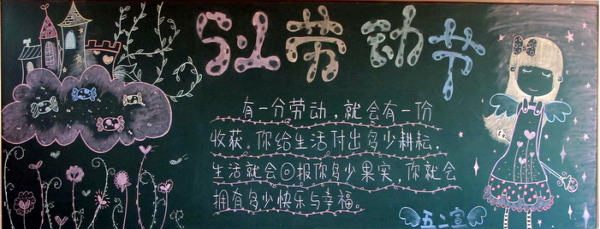 5.1劳动节
有一分劳动，就会有一份
收获。你给生活付出多少耕耘，
生活就会回报你多少果实，你就会
拥有多少快乐与幸福。
五二宣